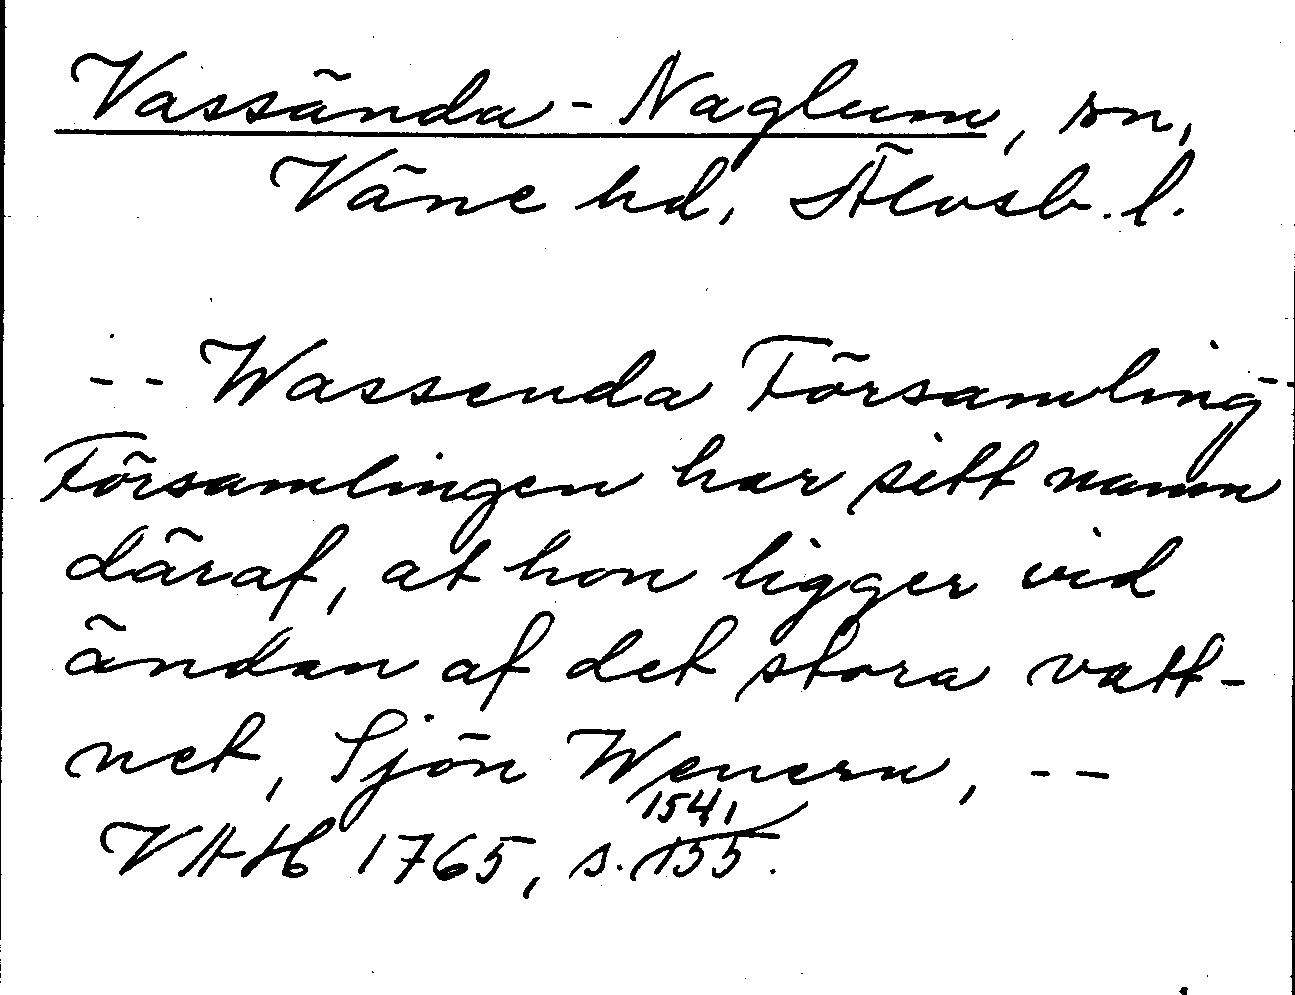 Vassända-Naglum, sn,
Väne hd, Älvsb. l.
-- Wassenda Församling --
Församlingen har sitt namn
däraf, at hon ligger vid
ändan af det stora vatt-
net, Sjön Wenern, --
1541
VAH 1765, s. 155.